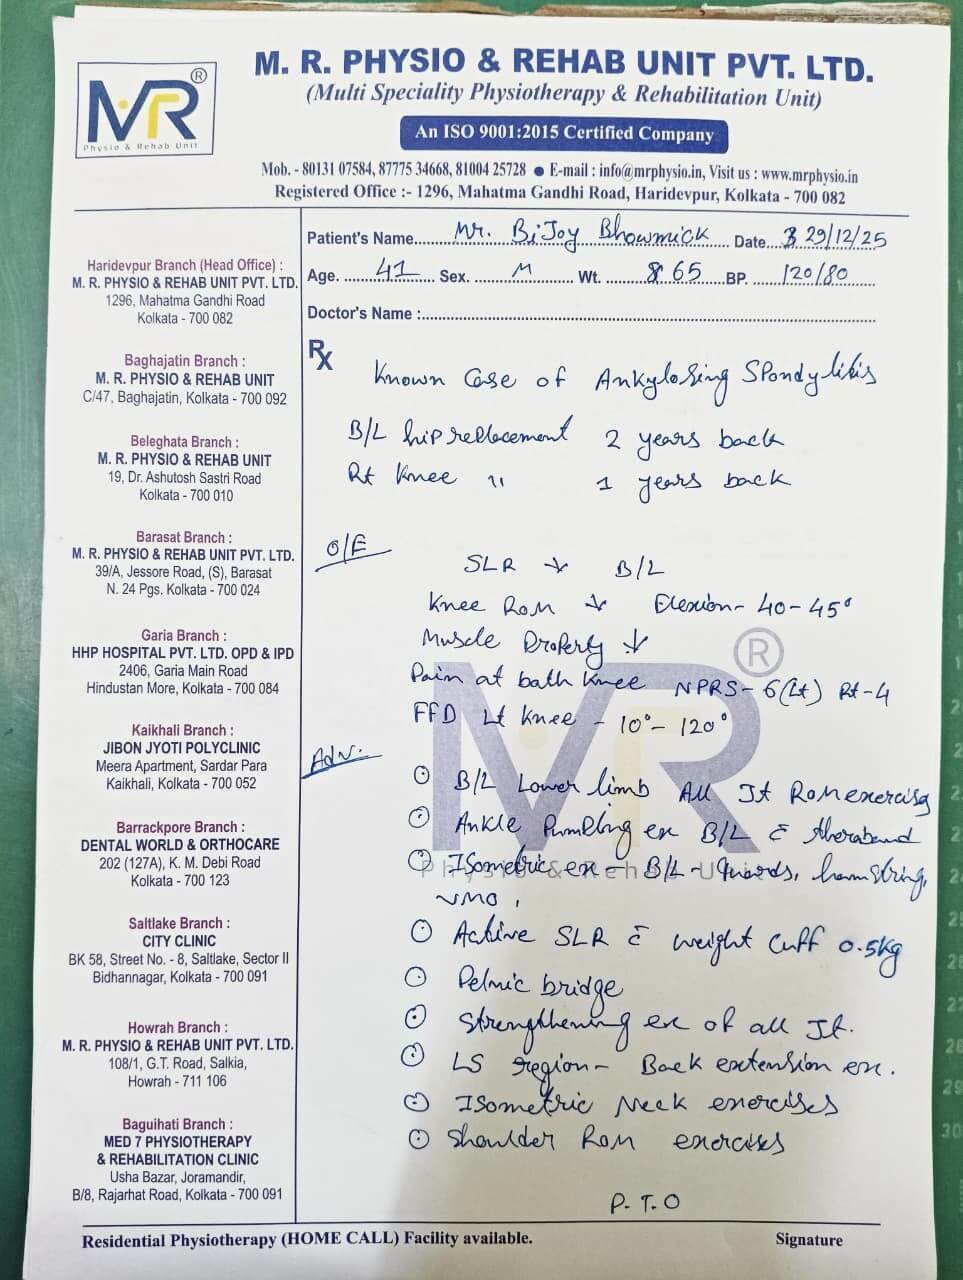 MR®
Physio & Rehab Unit
M. R. PHYSIO & REHAB UNIT PVT. LTD.
(Multi Speciality Physiotherapy & Rehabilitation Unit)
An ISO 9001:2015 Certified Company
Mob. - 80131 07584, 87775 34668, 81004 25728 ● E-mail : info@mrphysio.in, Visit us : www.mrphysio.in
Registered Office :- 1296, Mahatma Gandhi Road, Haridevpur, Kolkata - 700 082
Haridevpur Branch (Head Office) :
M. R. PHYSIO & REHAB UNIT PVT. LTD.
1296, Mahatma Gandhi Road
Kolkata - 700 082
Baghajatin Branch :
M. R. PHYSIO & REHAB UNIT
C/47, Baghajatin, Kolkata - 700 092
Beleghata Branch :
M. R. PHYSIO & REHAB UNIT
19, Dr. Ashutosh Sastri Road
Kolkata - 700 010
Barasat Branch :
M. R. PHYSIO & REHAB UNIT PVT. LTD.
39/A, Jessore Road, (S), Barasat
N. 24 Pgs. Kolkata - 700 024
Garia Branch :
HHP HOSPITAL PVT. LTD. OPD & IPD
2406, Garia Main Road
Hindustan More, Kolkata - 700 084
Kaikhali Branch :
JIBON JYOTI POLYCLINIC
Meera Apartment, Sardar Para
Kaikhali, Kolkata - 700 052
Barrackpore Branch :
DENTAL WORLD & ORTHOCARE
202 (127A), K. M. Debi Road
Kolkata - 700 123
Saltlake Branch :
CITY CLINIC
BK 58, Street No. - 8, Saltlake, Sector II
Bidhannagar, Kolkata - 700 091
Howrah Branch :
M. R. PHYSIO & REHAB UNIT PVT. LTD.
108/1, G.T. Road, Salkia,
Howrah - 711 106
Baguihati Branch :
MED 7 PHYSIOTHERAPY
& REHABILITATION CLINIC
Usha Bazar, Joramandir,
B/8, Rajarhat Road, Kolkata - 700 091
Patient's Name Mr. BiJoy Bhowmick Date 29/12/25
Age. 41 Sex. M Wt. 65 BP. 120/80
Doctor's Name :
Rx
Known Case of Ankylosing Spondylitis
B/L hip replacement 2 years back
Rt Knee " 1 years back
O/E
SLR ↓ B/L
Knee ROM ↓ Flexion - 40-45°
Muscle Property ↓
Pain at bath Knee NPRS-6(Lt) Rt-4
FFD Lt Knee - 10°-120°
Adv:-
B/L Lower limb All Jt Rom exercises
Ankle Pumping ex B/L c̄ theraband
Isometric ex - B/L - Quards, hamstring,
VMO,
Active SLR c̄ weight Cuff 0.5kg
Pelvic bridge
Strengthening ex of all Jt.
LS region - Back extension ex.
Isometric Neck exercises
Shoulder Rom exercises
P.T.O
Residential Physiotherapy (HOME CALL) Facility available.
Signature